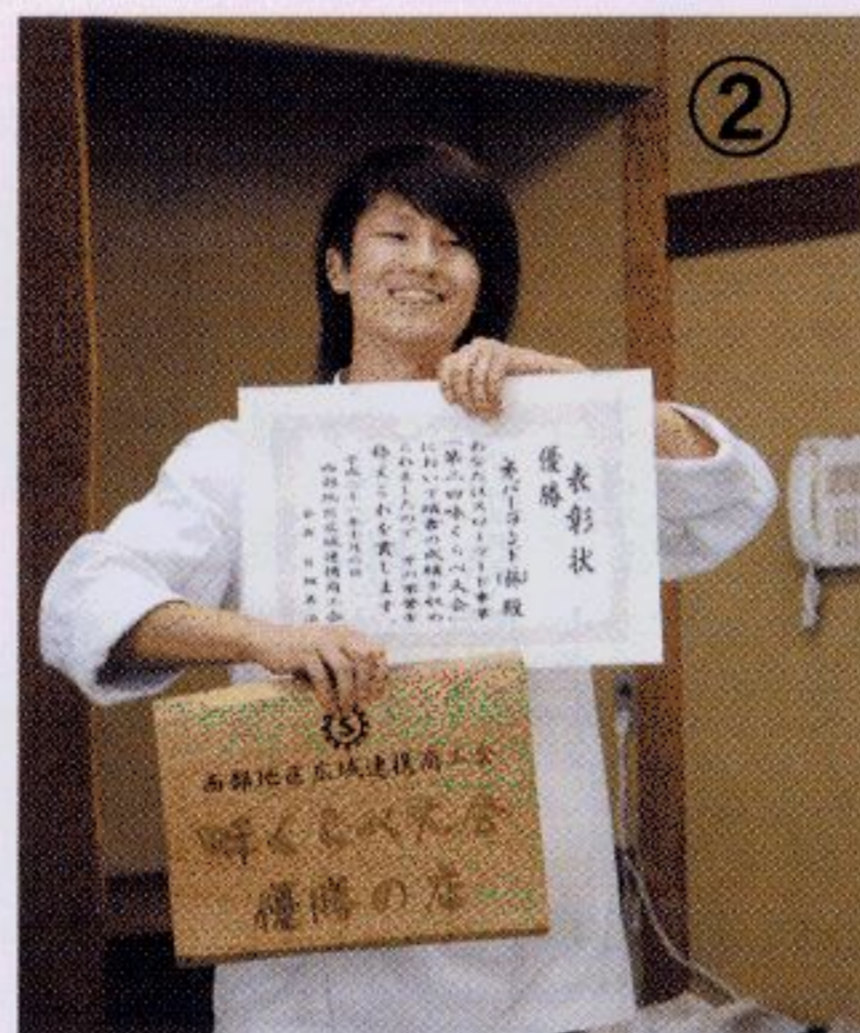 ②
表彰状
優勝
㈱殿
あなたはスローフード事業
「第二回味くらべ大会」
において頭書の成績を収め
られましたので その栄誉を
称えこれを賞します。
西部地区広域連携商工会
会長
S
西部地区広域連携商工会
味くらべ大会
優勝の店